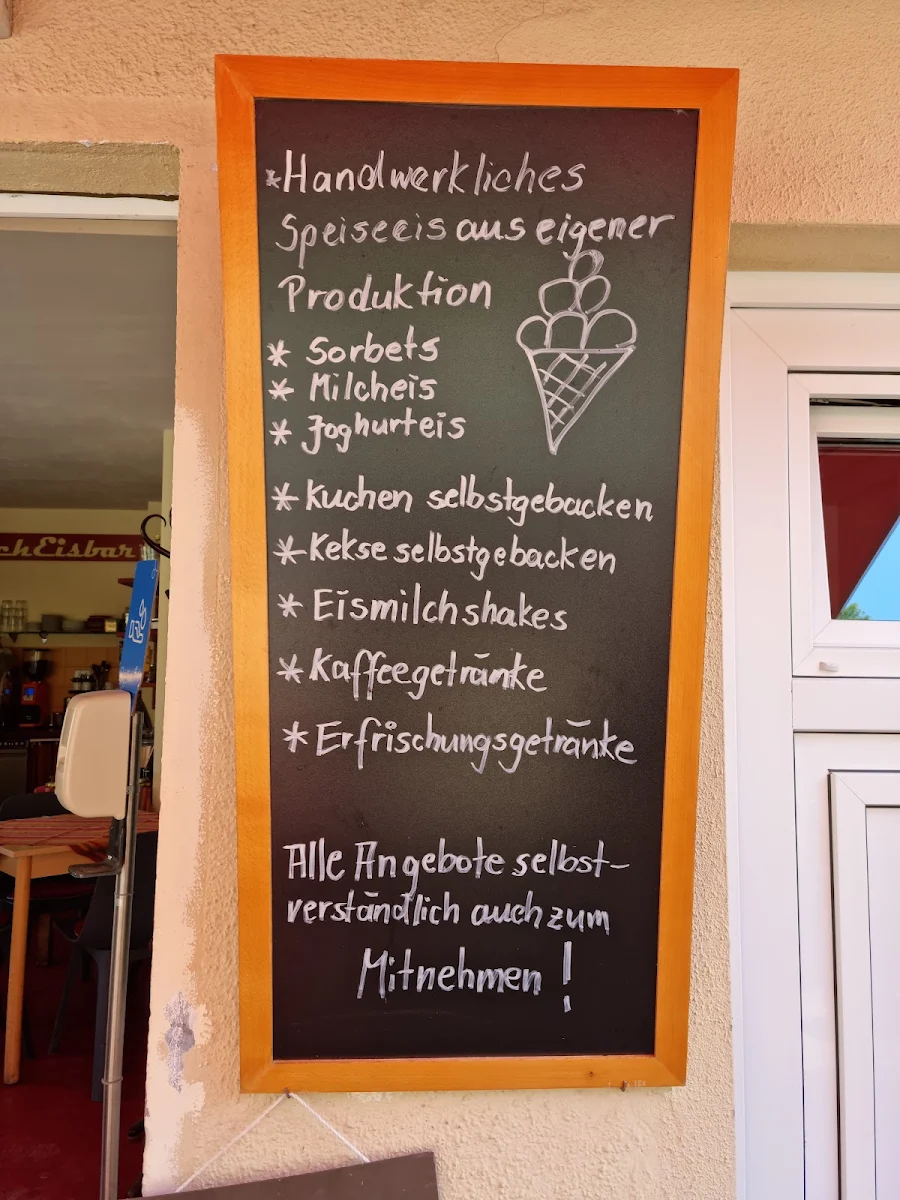 *Handwerkliches
Speiseeis aus eigener
Produktion
* Sorbets
* Milcheis
* Joghurteis
* Kuchen selbstgebacken
* Kekse selbstgebacken
* Eismilchshakes
* Kaffeegetränke
* Erfrischungsgetränke
Alle Angebote selbst-
verständlich auch zum
Mitnehmen !
chEisbar